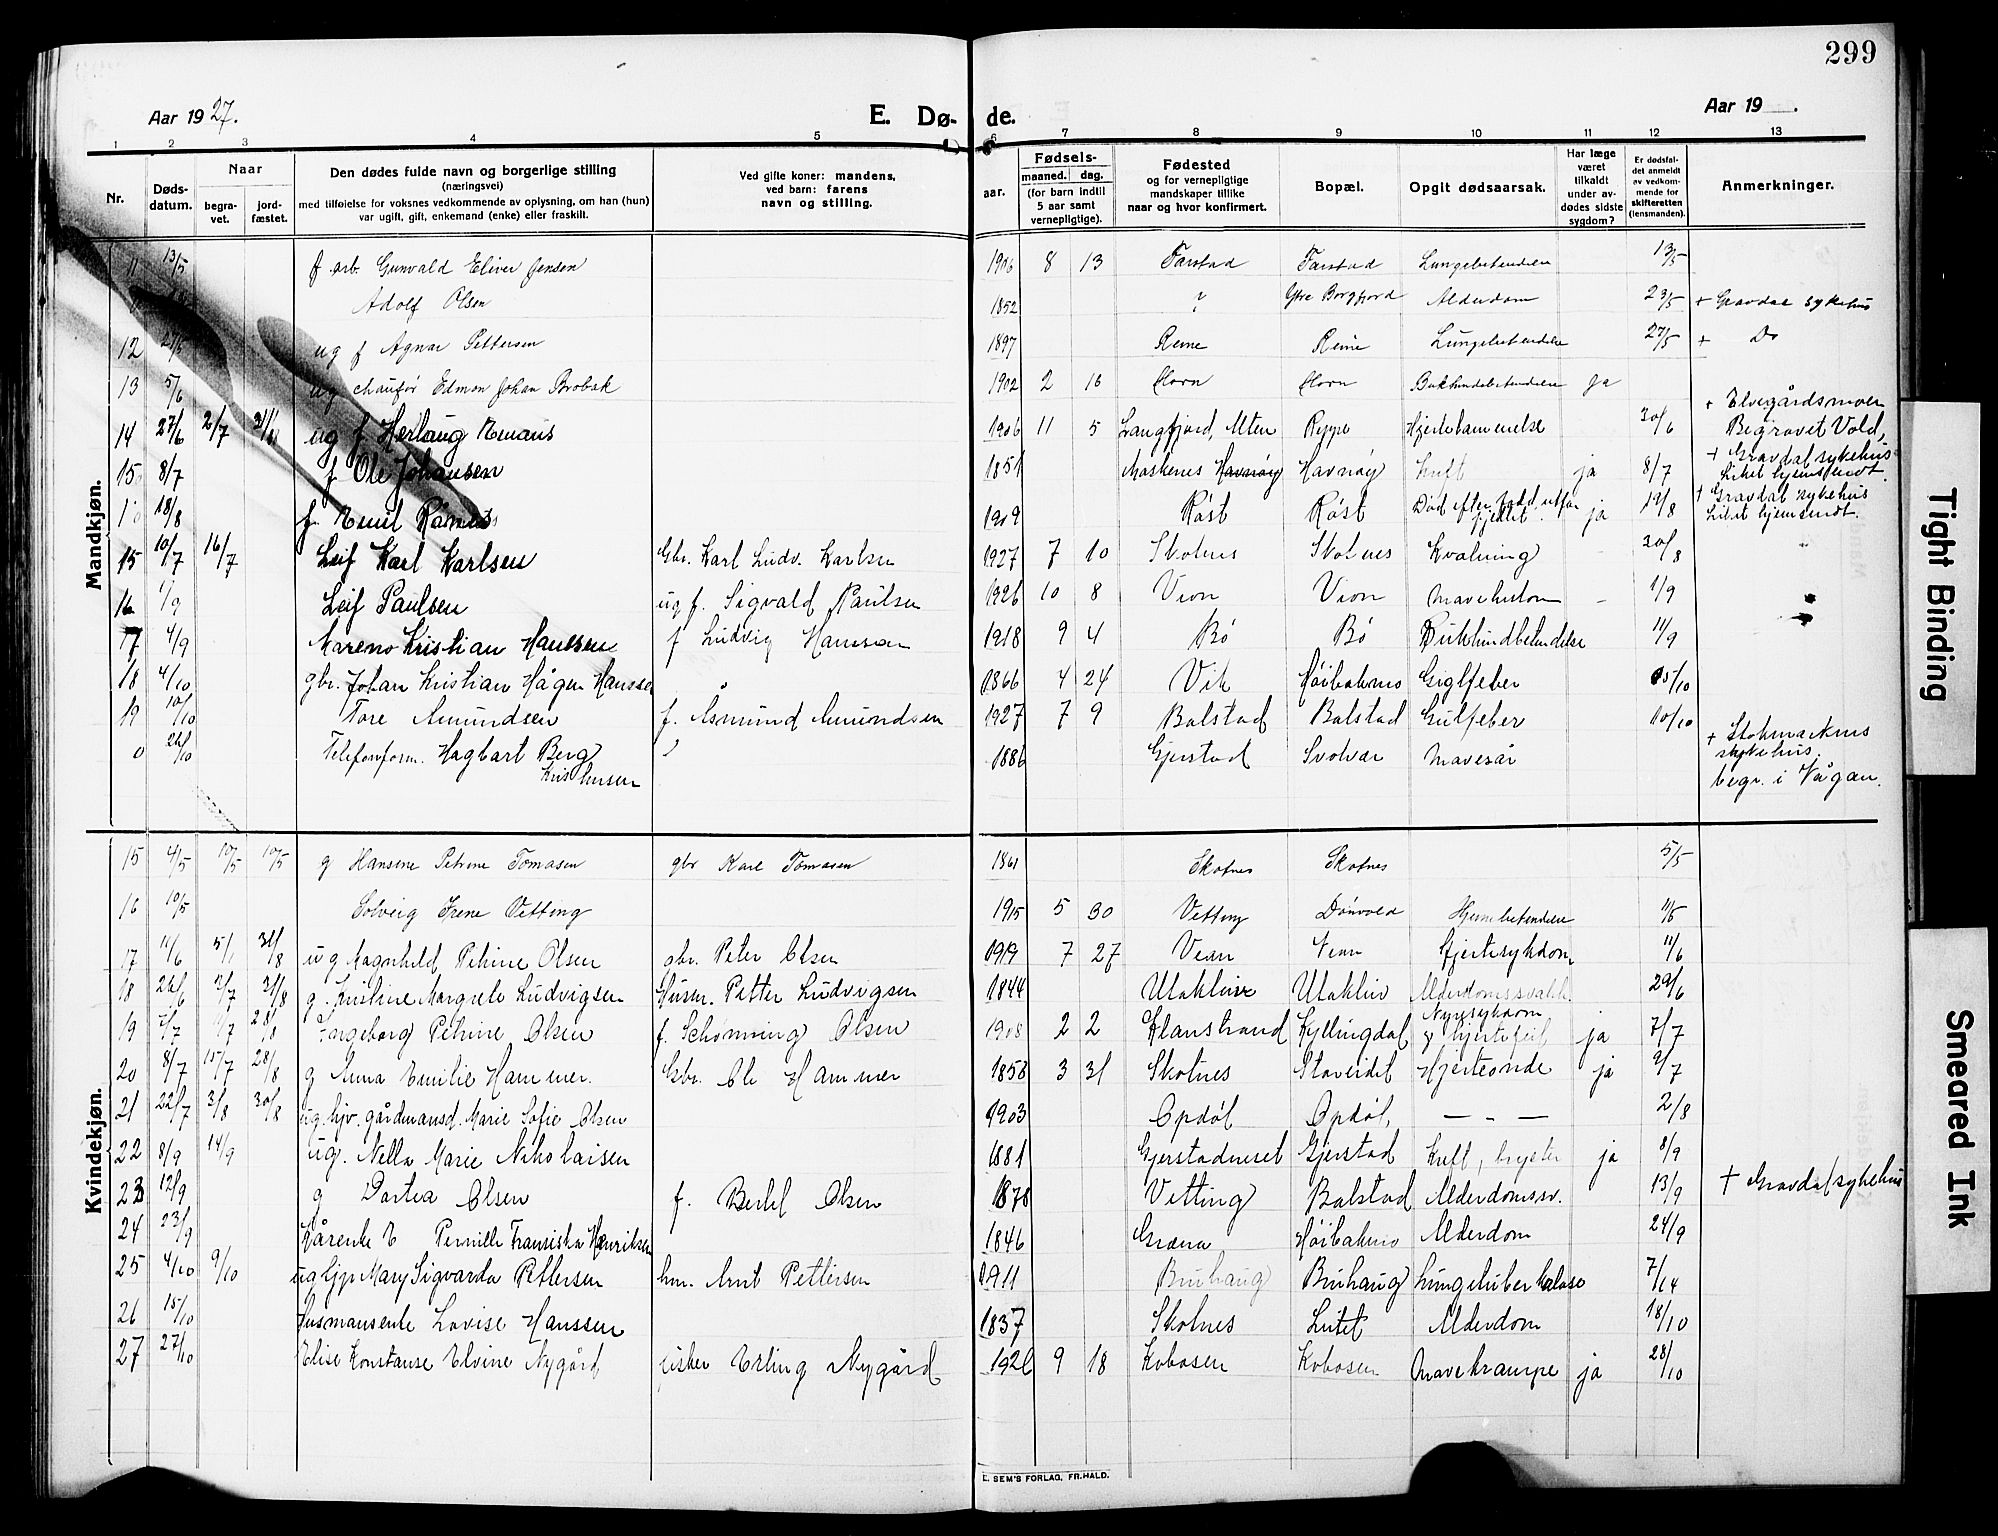 299
Aar 19 27.
E. Dø-
de.
Aar 19 .
1 2 3 4 5 6 7 8 9 10 11 12 13
Nr. Døds-datum. Naar begra-vet. jord-fæstet. Den dødes fulde navn og borgerlige stilling (næringsvei) med tilføielse for voksnes vedkommende av oplysning, om han (hun) var ugift, gift, enkemand (enke) eller fraskilt. Ved gifte koner: mandens, ved barn: farens navn og stilling. Fødsels- aar. maaned. dag. (for barn indtil 5 aar samt vernepligtige). Fødested og for vernepligtige mandskaper tillike naar og hvor konfirmert. Bopæl. Opgit dødsaarsak. Har læge været tilkaldt under av-dødes sidste sygdom? Er dødsfal-det anmeldt av vedkom-mende for skifteretten (lensmanden). Anmerkninger.
Mandkjøn.
11 13/5 f arb. Gunvald Eliver Jensen 1906 8 13 Farstad Farstad Lungebetendelse 13/5
Adolf Olsen 1852 ? Ytre Borgfjord Alderdom 23/5 + Gravdal sykehus
12 27/5 ug f Agnar Pettersen 1897 Reine Reine Lungebetendelse 27/5 + Do
13 5/6 ug chaufør Edmon Johan Brobak 1902 2 16 Horn Horn Bukhindebetendelse ja
14 27/6 2/7 31/ ug f. Herlaug 1906 11 5 Langfjord, Alten 30/6 + Elvegårdsmoen Begravet Vold,
15 8/7 f Ole Johansen 1851 Moskenes Havnøy Havnøy kreft ja 8/7 + Gravdal sykehus Liket hjemsendt.
18/8 f. Emil 1909 Røst Røst Død efter ja 19/8 + Gravdal sykehus Liket hjemsendt.
15 10/7 16/7 Leif Karl Karlsen Gbr. Karl Ludv. Karlsen 1927 7 10 Skotnes Skotnes Kvalning - 20/8 "
16 1/9 Leif Paulsen ug f. Sigvald Paulsen 1926 10 8 - 1/9
17 4/9 Mareno Kristian Hanssen f Ludvig Hanssen 1918 9 4 Bø Bø Bukhindbetendelse 11/9
18 4/10 gbr. Johan Kristian Hågen Hanssen 1866 4 24 Vik Giglfeber 5/10
19 10/10 Tore Amundsen f. Åsmund Amundsen 1927 7 9 Balstad Balstad Gulfeber 10/10
26/10 Telefonform. Hagbart Berg Kristensen 1886 Gjerstad Svolvær Mavesår + Stokmarknes sykehus. begr. i Vågan.
Kvindekjøn.
15 4/5 10/5 10/5 g Hansine Petrine Tomasen gbr Karl Tomasen 1861 Skotnes Skotnes 5/5
16 10/5 Solveig Irene Vetting 1915 5 30 Vetting Dønvold Hjernebetendelse 11/5
17 11/6 5/ 31/8 ug Magnhild Petrine Olsen gbr. Peter Olsen 1919 7 27 Hjertesykdom 11/6
18 26/6 2/7 31/8 g. Kristine Margrete Ludvigsen Husm. Petter Ludvigsen 1844 Utakleive Utakleiv Alderdomssvakh. 29/6
19 7/7 /7 28/8 Ingeborg Petrine Olsen f. Schønning Olsen 1908 2 2 Klanstrand Kyllingdal Nyresykdom og hjertefeil ja 7/7
20 8/7 15/7 28/8 g Anna Emilie Hammer. Gbr. Ole Hammer 1858 3 31 Skotnes Staveidet Hjerteonde ja 9/7
21 22/7 3/8 30/8 ug. hjv. gårdmansd. Marie Sofie Olsen 1903 Opdøl Opdøl, — - — 2/8
22 8/9 14/9 ug. Nella Marie Nikolaisen 1881 Gjerstadneset Gjerstad Kreft, brystet ja 8/9
23 12/9 g Dortea Olsen f. Bertel Olsen 1878 Vetting Balstad Alderdomssv. 13/9 + Gravdal sykehus
24 23/9 Kårenke E Pernille Fransiska Henriksen 1846 Alderdom 24/9
25 4/10 9/10 ug hjp Mary Sigvarda Pettersen hm. Arnt Pettersen 1911 Bruhaug Bruhaug Lungetuberkulose 7/14
26 15/10 Husmansenke Lovise Hanssen 1837 Skotnes Leitet Alderdom 18/10
27 27/10 Elise Konstanse Elvine Nygård fisker Erling Nygård 1926 9 18 Kobosen Kobosen Mavekrampe ja 28/10
E. SEM'S FORLAG, FR.HALD.
Tight Binding
Smeared Ink